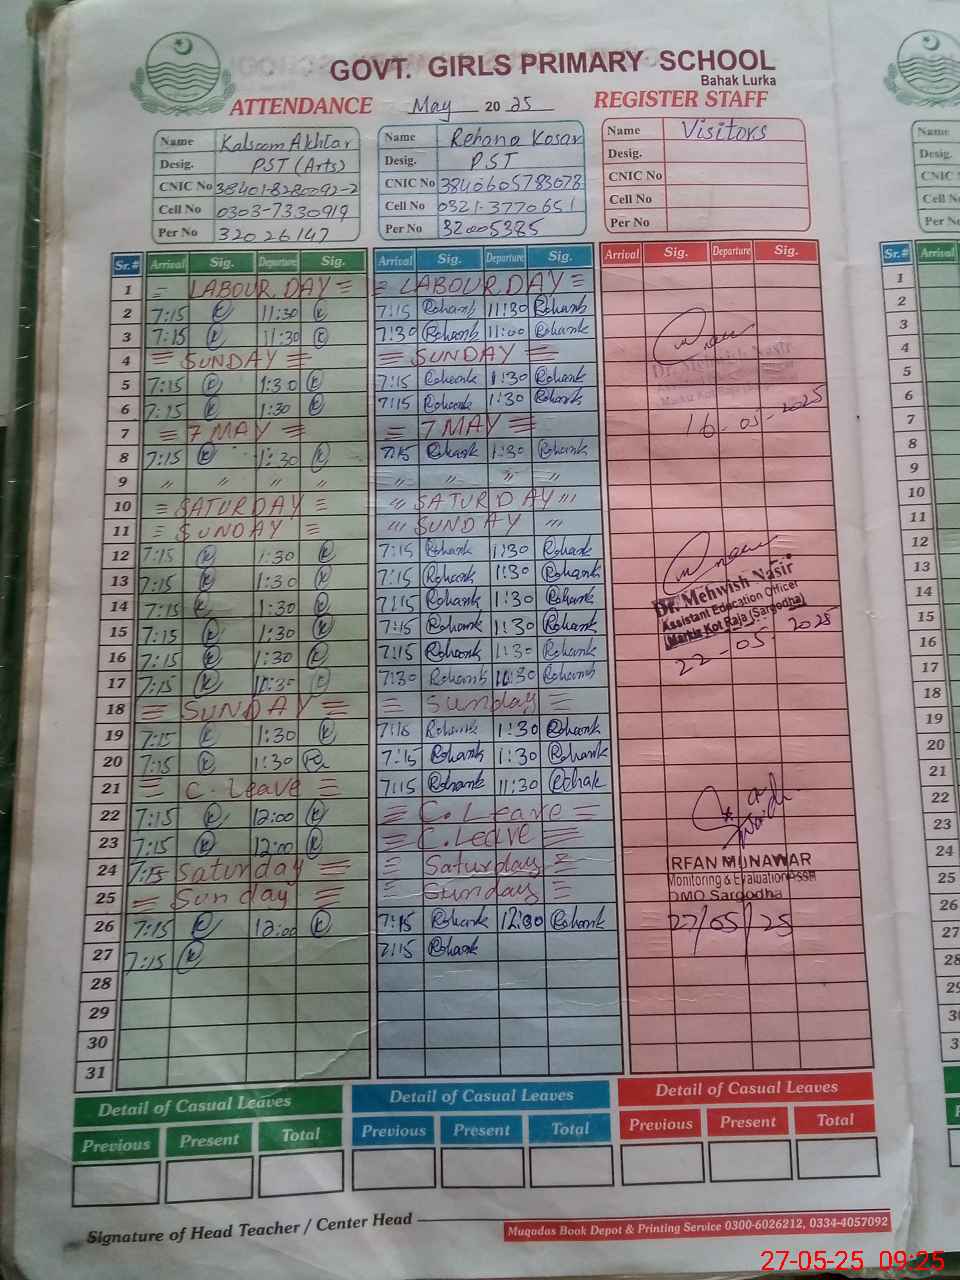 GOVT. GIRLS PRIMARY SCHOOL
Bahak Lurka
ATTENDANCE May 2025 REGISTER STAFF
Name Kalsoom Akhtar Name Rehana Kosar Name Visitors
Desig. PST (Arts) Desig. PST Desig.
CNIC No 38401-8280092-2 CNIC No 3840605783078 CNIC No
Cell No 0303-7330919 Cell No 0321-3770651 Cell No
Per No 32026147 Per No 32005385 Per No
Sr.# Arrival Sig. Departure Sig. Arrival Sig. Departure Sig. Arrival Sig. Departure Sig.
1 = LABOUR DAY = = LABOUR DAY =
2 7:15 K 11:30 K 7:15 11:30
3 7:15 K 11:30 K 7:30 11:00
4 = SUNDAY = = SUNDAY =
5 7:15 K 1:30 K 7:15 1:30
6 7:15 K 1:30 K 7:15 1:30
7 = 7 MAY = = 7 MAY =
8 7:15 K 1:30 K 7:15 1:30
9 〃 〃 〃 〃 〃 〃 〃 〃
10 = SATURDAY = SATURDAY
11 = SUNDAY = SUNDAY
12 7:15 K 1:30 K 7:15 1:30
13 7:15 K 1:30 K 7:15 1:30
14 7:15 K 1:30 K 7:15 1:30
15 7:15 K 1:30 K 7:15 1:30
16 7:15 K 1:30 K 7:15 1:30
17 7:15 K 11:30 K 7:30 11:30
18 = SUNDAY = = Sunday =
19 7:15 K 1:30 K 7:15 1:30
20 7:15 K 1:30 7:15 1:30
21 = C. Leave = 7:15 11:30
22 7:15 K 12:00 K = C. Leave =
23 7:15 K 12:00 K = C. LEAVE =
24 7:15 Saturday = = Saturday =
25 = Sunday = = Sunday =
26 7:15 K 12:00 K 7:15 12:00
27 7:15 K 7:15
28
29
30
31
Dr. Mehwish Nasir
16-05-2025
Dr. Mehwish Nasir
Assistant Education Officer
Markiz Kot Raja (Sargodha)
22-05-2025
IRFAN MUNAWAR
Monitoring & Evaluation
DMO Sargodha
27/05/25
Detail of Casual Leaves Detail of Casual Leaves Detail of Casual Leaves
Previous Present Total Previous Present Total Previous Present Total
Signature of Head Teacher / Center Head
Muqadas Book Depot & Printing Service 0300-6026212, 0334-4057092
27-05-25 09:25
Name
Desig.
CNIC
Cell No
Per No
Sr.# Arrival
1
2
3
4
5
6
7
8
9
10
11
12
13
14
15
16
17
18
19
20
21
22
23
24
25
26
27
28